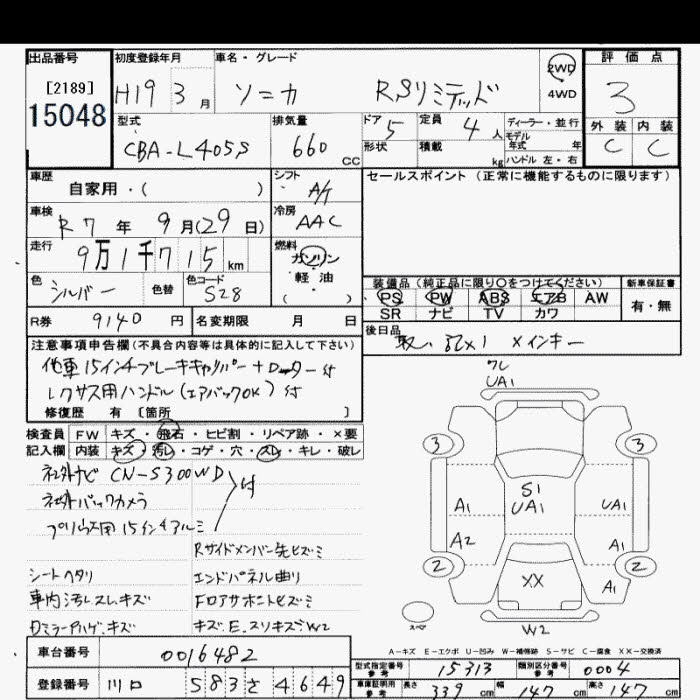 出品番号 初度登録年月 車名・グレード 評価点
[2189] H19 3月 ソニカ RSリミテッド 2WD 4WD 3
15048
型式 排気量 ドア 定員 ディーラー・並行
CBA-L405S 660 CC 5 4人 モデル年式 年
形状 積載 kg ハンドル 左・右
外装 内装
C C
車歴 シフト セールスポイント (正常に機能するものに限ります)
自家用・( ) A/T
車検 冷房
R7年 9月(29日) AAC
走行 燃料
9万1千715km ガソリン
軽油
( )
色 色替 色コード
シルバー S28
装備品 (純正品に限り〇をつけてください) 新車保証書
PS PW ABS エアB AW 有・無
SR ナビ TV カワ
R券 9140円 名変期限 月 日
後日品
取、記×1 ×インキー
注意事項申告欄 (不具合内容等は具体的に記入して下さい)
他車15インチブレーキキャリパー+ローター付
レクサス用ハンドル(エアバックOK)付
修復歴 有 〔箇所 〕
検査員記入欄
FW キズ・飛石・ヒビ割・リペア跡・×要
内装 キズ・汚レ・コゲ・穴・スレ・キレ・破レ
社外ナビ CN-S300WD
社外バックカメラ 付
プリウス用15インチアルミ
Rサイドメンバー先ヒズミ
シートヘタリ エンドパネル曲り
車内汚レスレキズ Fロアサポートヒズミ
ミラーアハゲ.キズ キズ.E.スリキズ.W2
ワレ
UA1
3 3
S1
UA1
A1 UA1
A2 A1
2 2
XX A1
スペア
W2
A-キズ E-エクボ U-凹み W-補修跡 S-サビ C-腐食 XX-交換済
車台番号 0016482
型式指定番号 参考 15313 類別区分番号 参考 0004
登録番号 川口 583さ4649
車庫証明用 参考 長さ 339cm 幅 147cm 高さ 147cm